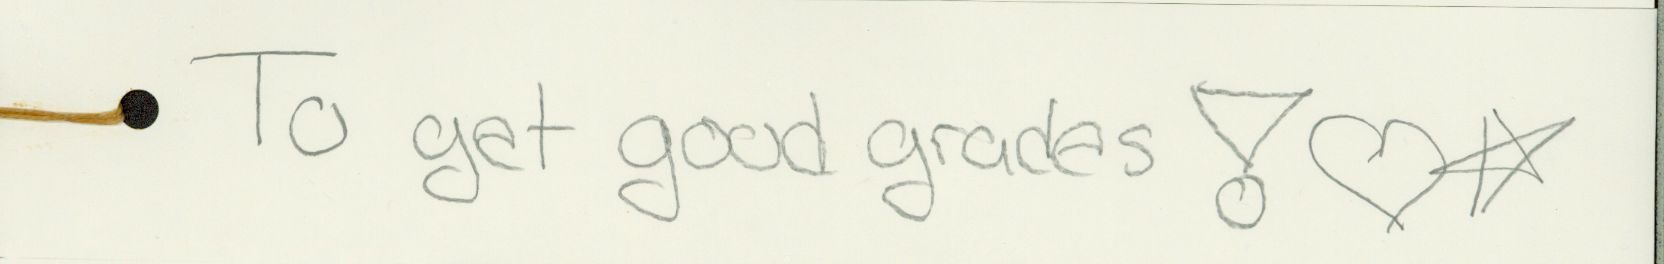 To get good grades! ♡☆